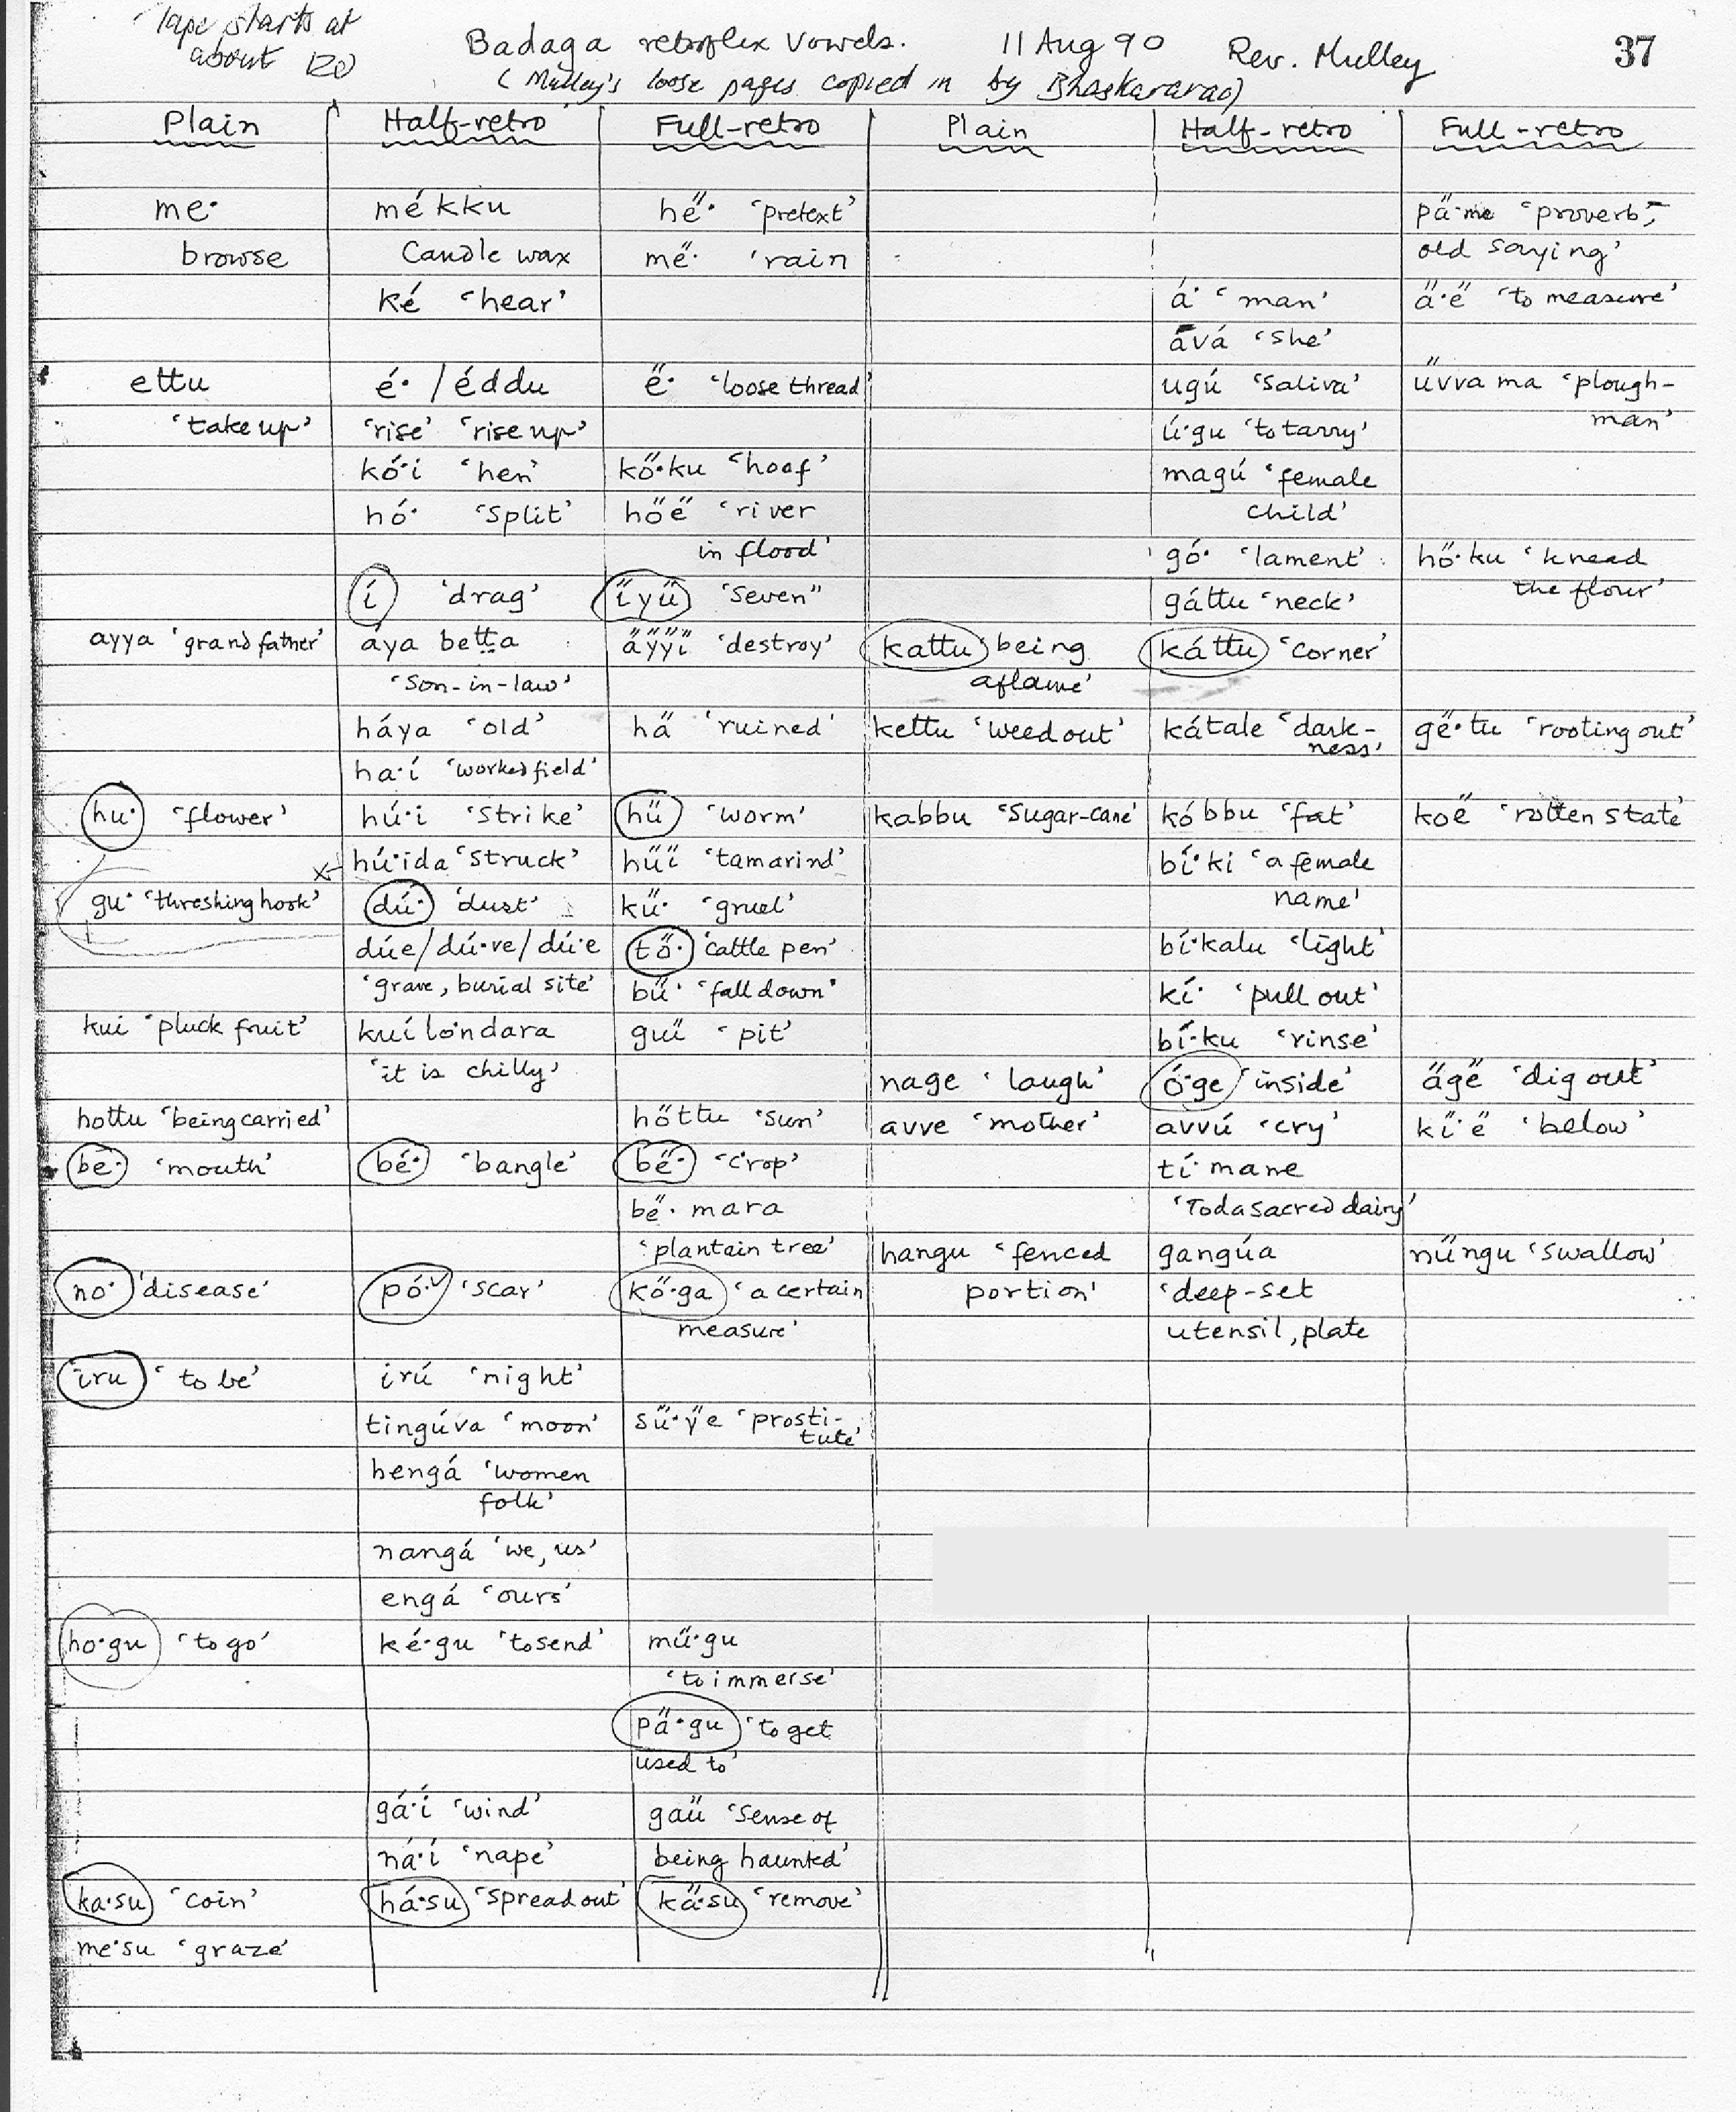 Tape starts at
about 120
Badaga retroflex Vowels. 11 Aug 90 Rev. Mulley 37
(Mulley's loose pages copied in by Bhaskararao)
Plain Half-retro Full-retro Plain Half-retro Full-retro
me· mé kku hé̋· 'pretext' pa̋·me 'proverb,
browse Candle wax me̋· 'rain old saying'
ké 'hear' á· 'man' a̋·e̋ 'to measure'
ává 'she'
ettu é· / éddu e̋· 'loose thread' ugú 'saliva' űvva ma 'plough-
'take up' 'rise' 'rise up' ú·gu 'to tarry' man'
kó·i 'hen' kő·ku 'hoof' magú 'female
hó· 'split' hőe̋ 'river child'
in flood' gó· 'lament' hő·ku 'knead
í 'drag' i̋yű 'seven" gáttu 'neck' the flour'
ayya 'grand father' áya betta a̋y̋y̋i̋ 'destroy' kattu 'being káttu 'corner'
'Son-in-law' aflame'
háya 'old' ha̋ 'ruined' kettu 'weed out' kátale 'dark- ge̋·tu 'rooting out'
ness'
ha·í 'worked field'
hu· 'flower' hú·i 'strike' hű 'worm' kabbu 'Sugar-cane' kóbbu 'fat' koe̋ 'rotten state'
hú·ida 'struck' hűi̋ 'tamarind' bí·ki 'a female
gu· 'threshing hook' dú· 'dust' kű· 'gruel' name'
dúe/dú·ve/dú·e tő· 'cattle pen' bí·kalu 'light'
'grave, burial site' bű· 'fall down' kí· 'pull out'
kui 'pluck fruit' kuí lo·ndara gui̋ 'pit' bí·ku 'rinse'
'it is chilly' nage 'laugh' ó·ge 'inside' a̋ge̋ 'dig out'
hottu 'being carried' hőttu 'sun' avve 'mother' avvú 'cry' ki̋·e̋ 'below'
be· 'mouth' bé· 'bangle' be̋· 'crop' tí· mane
be̋· mara 'Toda sacred dairy'
'plantain tree' hangu 'fenced gangúa nűngu 'swallow'
no· 'disease' pó· 'scar' kő·ga 'a certain portion' 'deep-set
measure' utensil, plate
iru 'to be' irú 'night'
tingúva 'moon' sű·y̋e 'prosti-
tute'
hengá 'women
folk'
nangá 'we, us'
engá 'ours'
ho·gu 'to go' ké·gu 'to send' mű·gu
'to immerse'
pa̋·gu 'to get
used to'
gá·í 'wind' gaű 'sense of
ná·í 'nape' being haunted'
ka·su 'coin' há·su 'spread out' ka̋·su 'remove'
me·su 'graze'